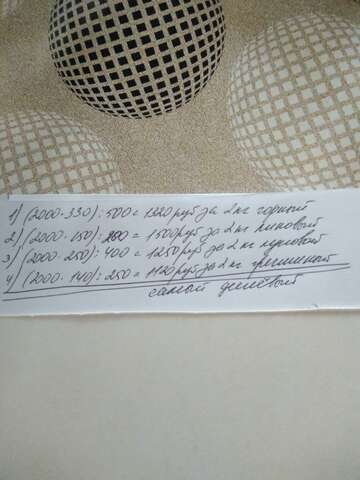 1) (2000·330):500=1320руб за 2кг горный
2) (2000·150):200=1500руб за 2кг липовый
3) (2000·250):400=1250руб за 2кг луговой
4) (2000·140):250=1120руб за 2кг гречишный
самый дешёвый